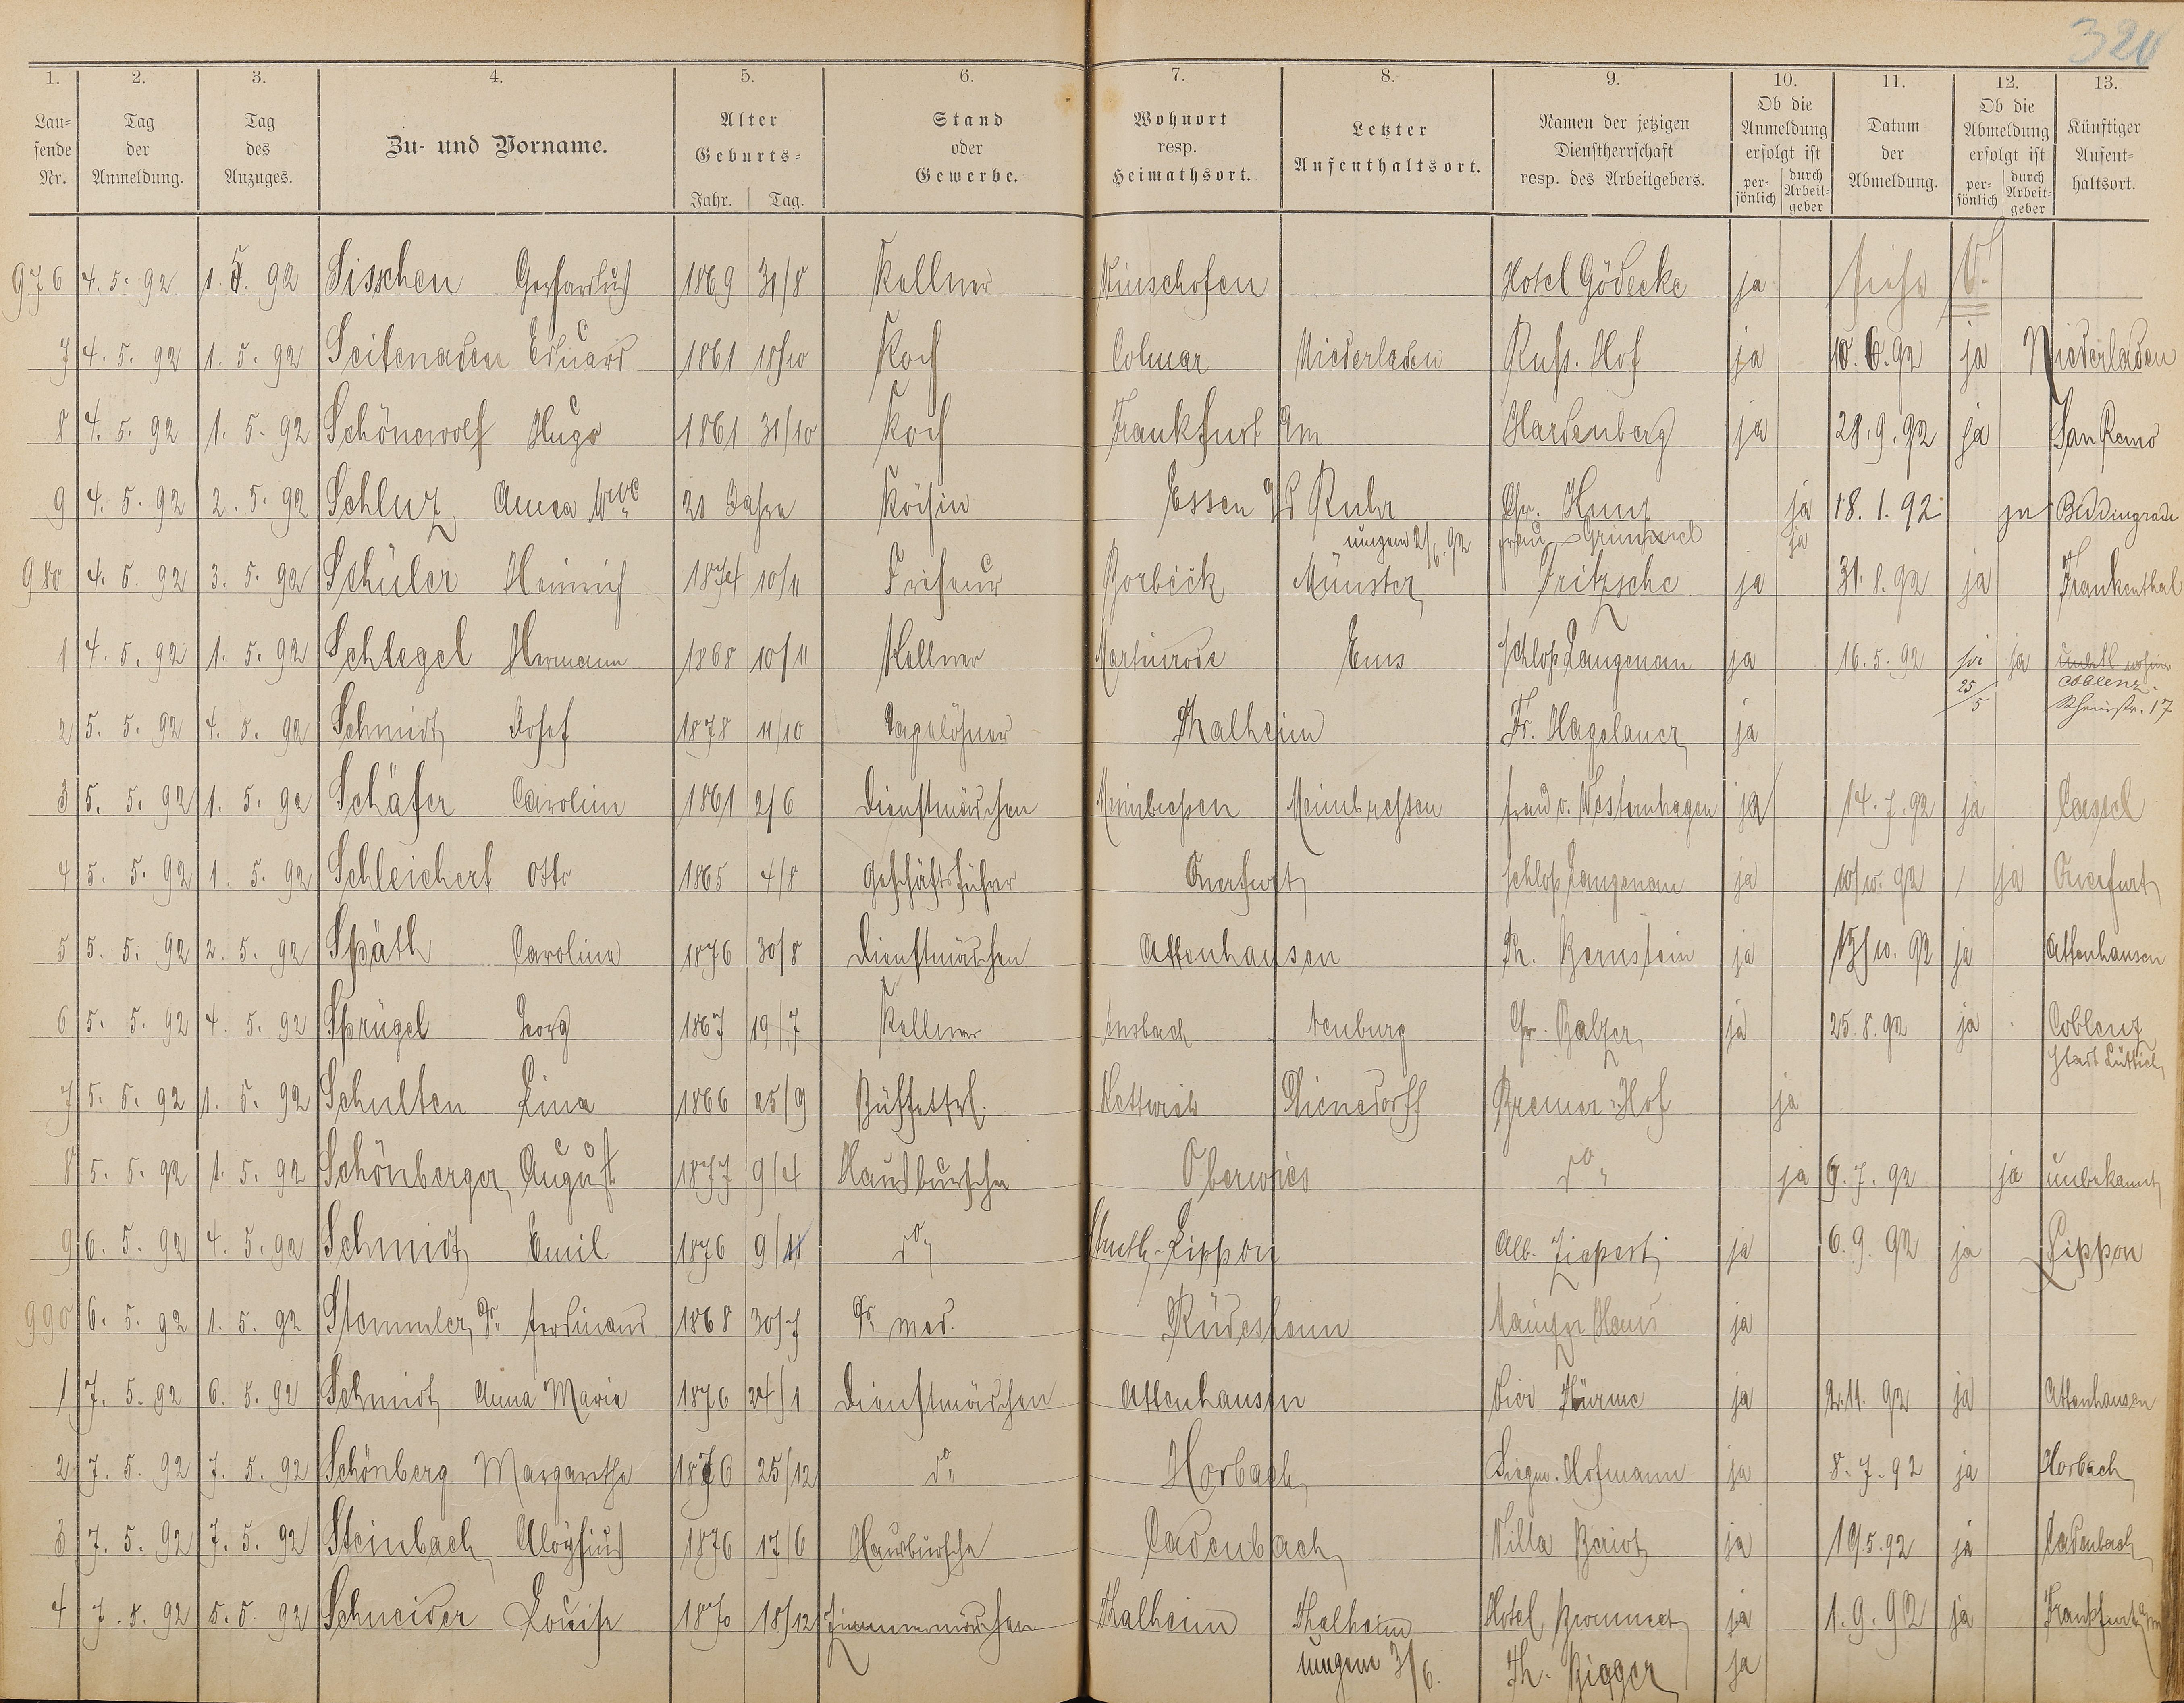 320
1. 2. 3. 4. 5. 6. 7. 8. 9. 10. 11. 12. 13.
Lau=fende Nr. Tag der Anmeldung. Tag des Anzuges. Zu- und Vorname. Alter Geburts= Jahr. Tag. Stand oder Gewerbe. Wohnort resp. Heimathsort. Letzter Aufenthaltsort. Namen der jetzigen Dienstherrschaft resp. des Arbeitgebers. Ob die Anmeldung erfolgt ist per=sönlich durch Arbeit=geber Datum der Abmeldung. Ob die Abmeldung erfolgt ist per=sönlich durch Arbeit=geber Künftiger Aufent=haltsort.
976 4. 5. 92 1. 5. 92 Sisschen 1869 31/8 Kellner Winschofen Hotel Gödecke ja siehe V.
7 4. 5. 92 1. 5. 92 Seitenaden Eduard 1861 18/10 Koch Colmar Niederladen Russ. Hof ja 10. 6. 92 ja Niederladen
8 4. 5. 92 1. 5. 92 Schönewolf Hugo 1861 31/10 Koch Frankfurt a/m Hardenberg ja 28. 9. 92 ja San Remo
9 4. 5. 92 2. 5. 92 Anna Wwe 21 Jahre Köchin Essen a/d Ruhr Chr. ja 18. 1. 92 ja
umgem 2/6. 92 Frau ja
980 4. 5. 92 3. 5. 92 Schüler Heinrich 1874 10/11 Friseur Borbeck Münster Fritzsche ja 31. 8. 92 ja Frankenthal
1 4. 5. 92 1. 5. 92 Schlegel Hermann 1868 10/11 Kellner Martinrode Ems Schloß Langenau ja 16. 5. 92 ja
25/5 Coblenz. Rheinstr. 17
2 5. 5. 92 4. 5. 92 Schmidt Josef 1878 11/10 Tagelöhner Thalheim Fr. Hagelauer ja
3 5. 5. 92 1. 5. 92 Schäfer Caroline 1861 2/6 Dienstmädchen Meimbressen Meimbressen Frau v. Westernhagen ja 14. 7. 92 ja Cassel
4 5. 5. 92 1. 5. 92 Schleichert Otto 1865 4/8 Geschäftsführer Querfurt Schloß Langenau ja 10/10. 92 / ja Querfurt
5 5. 5. 92 2. 5. 92 Späth Caroline 1876 30/8 Dienstmädchen Attenhausen Th. Bernstein ja 15/10. 92 ja Attenhausen
6 5. 5. 92 4. 5. 92 Sprügel Georg 1867 19/7 Kellner Ansbach Chr. Balzer ja 25. 8. 92 ja Coblenz
Stadt Lüttich
7 5. 5. 92 1. 5. 92 Schulten Lina 1866 25/9 Büffetfrl. Kettwich Bremer Hof ja
8 5. 5. 92 1. 5. 92 Schönberger August 1877 9/4 Hausbursche Oberwies do ja 6. 7. 92 ja unbekannt
9 6. 5. 92 4. 5. 92 Schmidt Emil 1876 9/11 do Lippon Alb. ja 6. 9. 92 ja Lippon
990 6. 5. 92 1. 5. 92 Stemmler, Dr. Ferdinand 1868 30/7 Dr med. Rüdesheim Mainzer Haus ja
1 7. 5. 92 6. 5. 92 Schmidt Anna Maria 1876 24/1 Dienstmädchen Attenhausen ja 2. 11. 92 ja Attenhausen
2 7. 5. 92 7. 5. 92 Schönberg Margarethe 1876 25/12 do Horbach Siegm. Hofmann ja 8. 7. 92 ja Horbach
3 7. 5. 92 7. 5. 92 Steinbach Aloysius 1876 17/6 Hausbursche Cadenbach Villa Beriot ja 19. 5. 92 ja Cadenbach
4 7. 5. 92 5. 5. 92 Schneider Louise 1870 18/12 Zimmermädchen Thalheim Thalheim Hotel ja 1. 9. 92 ja Frankfurt a/m
umgem 3/6. Th. Bigger ja